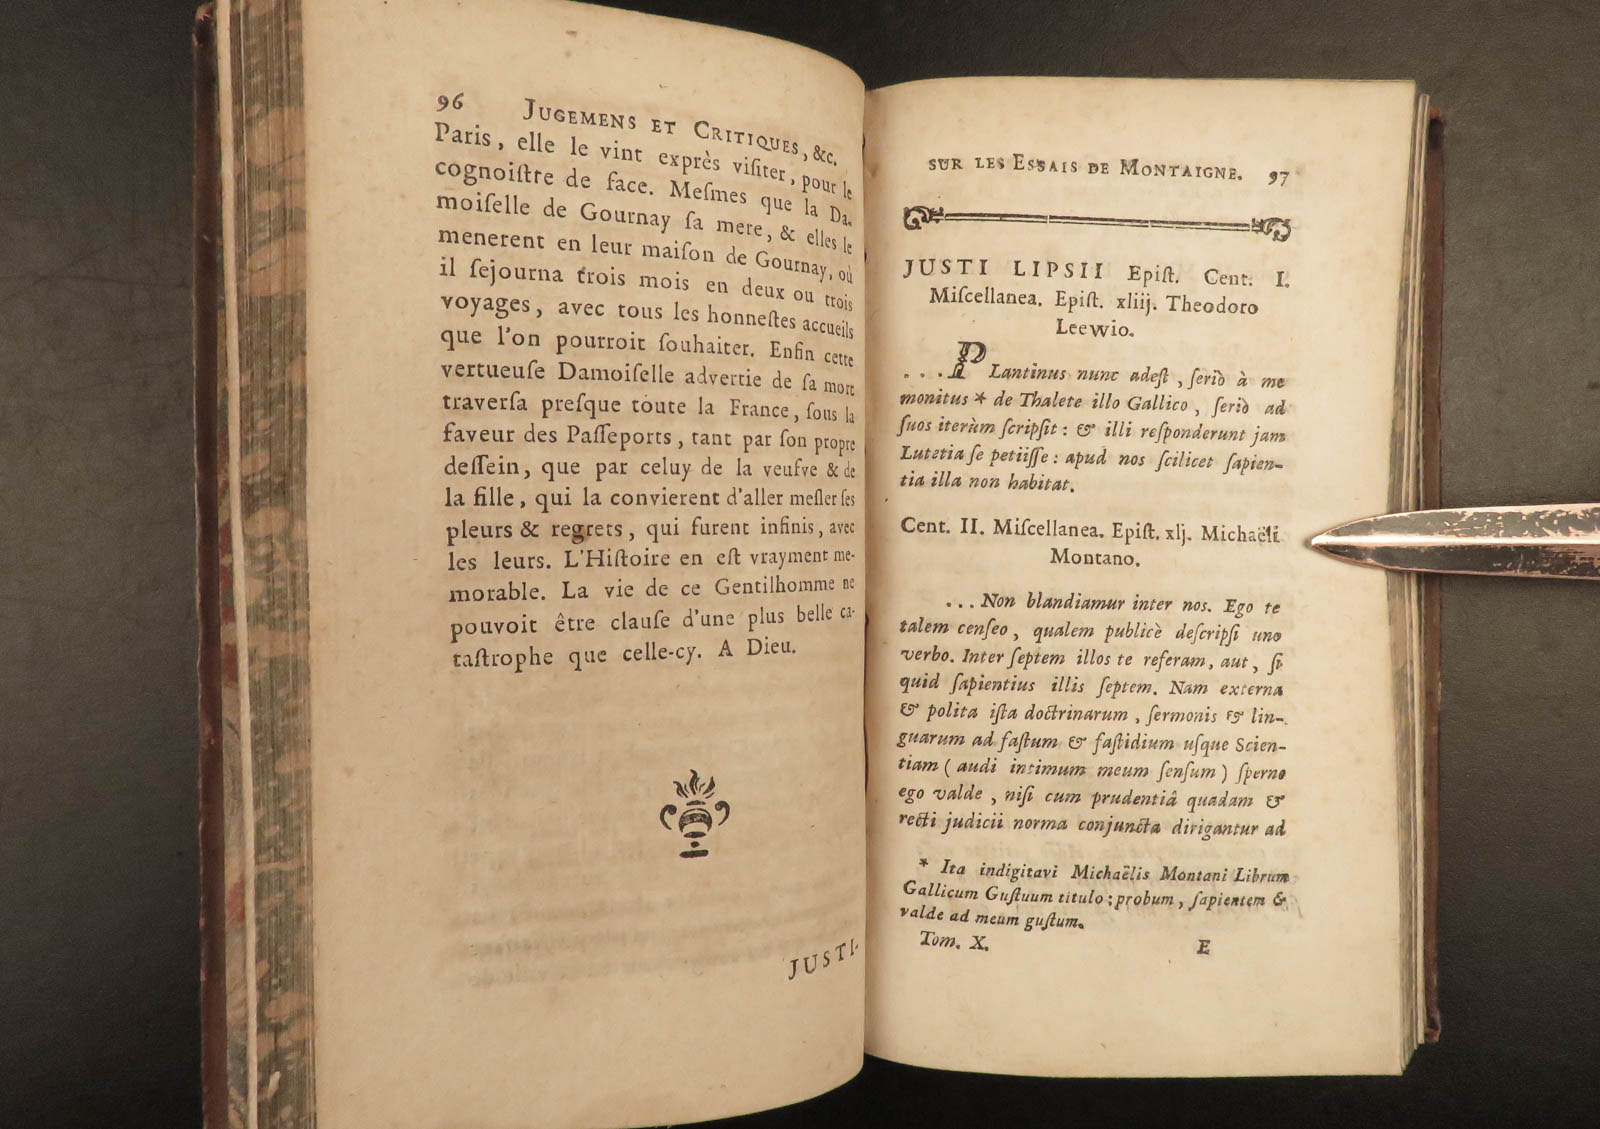 96 JUGEMENS ET CRITIQUES, &c.
Paris, elle le vint exprès viſiter, pour le
cognoiſtre de face. Meſmes que la Da-
moiſelle de Gournay ſa mere, & elles le
menerent en leur maiſon de Gournay, où
il ſejourna trois mois en deux ou trois
voyages, avec tous les honneſtes accueils
que l'on pourroit ſouhaiter. Enfin cette
vertueuſe Damoiſelle advertie de ſa mort
traverſa preſque toute la France, ſous la
faveur des Paſſeports, tant par ſon propre
deſſein, que par celuy de la veufve & de
la fille, qui la convierent d'aller meſler ſes
pleurs & regrets, qui furent infinis, avec
les leurs. L'Hiſtoire en eſt vrayment me-
morable. La vie de ce Gentilhomme ne
pouvoit être clauſe d'une plus belle ca-
taſtrophe que celle-cy. A Dieu.
JUSTI-
SUR LES ESSAIS DE MONTAIGNE. 97
JUSTI LIPSII Epiſt. Cent. I.
Miſcellanea. Epiſt. xliij. Theodoro
Leewio.
...PLantinus nunc adeſt, ſeriò à me
monitus * de Thalete illo Gallico, ſeriò ad
ſuos iterùm ſcripſit: & illi reſponderunt jam
Lutetia ſe petiiſſe: apud nos ſcilicet ſapien-
tia illa non habitat.
Cent. II. Miſcellanea. Epiſt. xlj. Michaëli
Montano.
...Non blandiamur inter nos. Ego te
talem cenſeo, qualem publicè deſcripſi uno
verbo. Inter ſeptem illos te referam, aut, ſi
quid ſapientius illis ſeptem. Nam externa
& polita iſta doctrinarum, ſermonis & lin-
guarum ad faſtum & faſtidium uſque Scien-
tiam (audi intimum meum ſenſum) ſperno
ego valde, niſi cum prudentiâ quadam &
recti judicii norma conjuncta dirigantur ad
* Ita indigitavi Michaëlis Montani Librum
Gallicum Guſtuum titulo; probum, ſapientem &
valde ad meum guſtum.
Tom. X. E